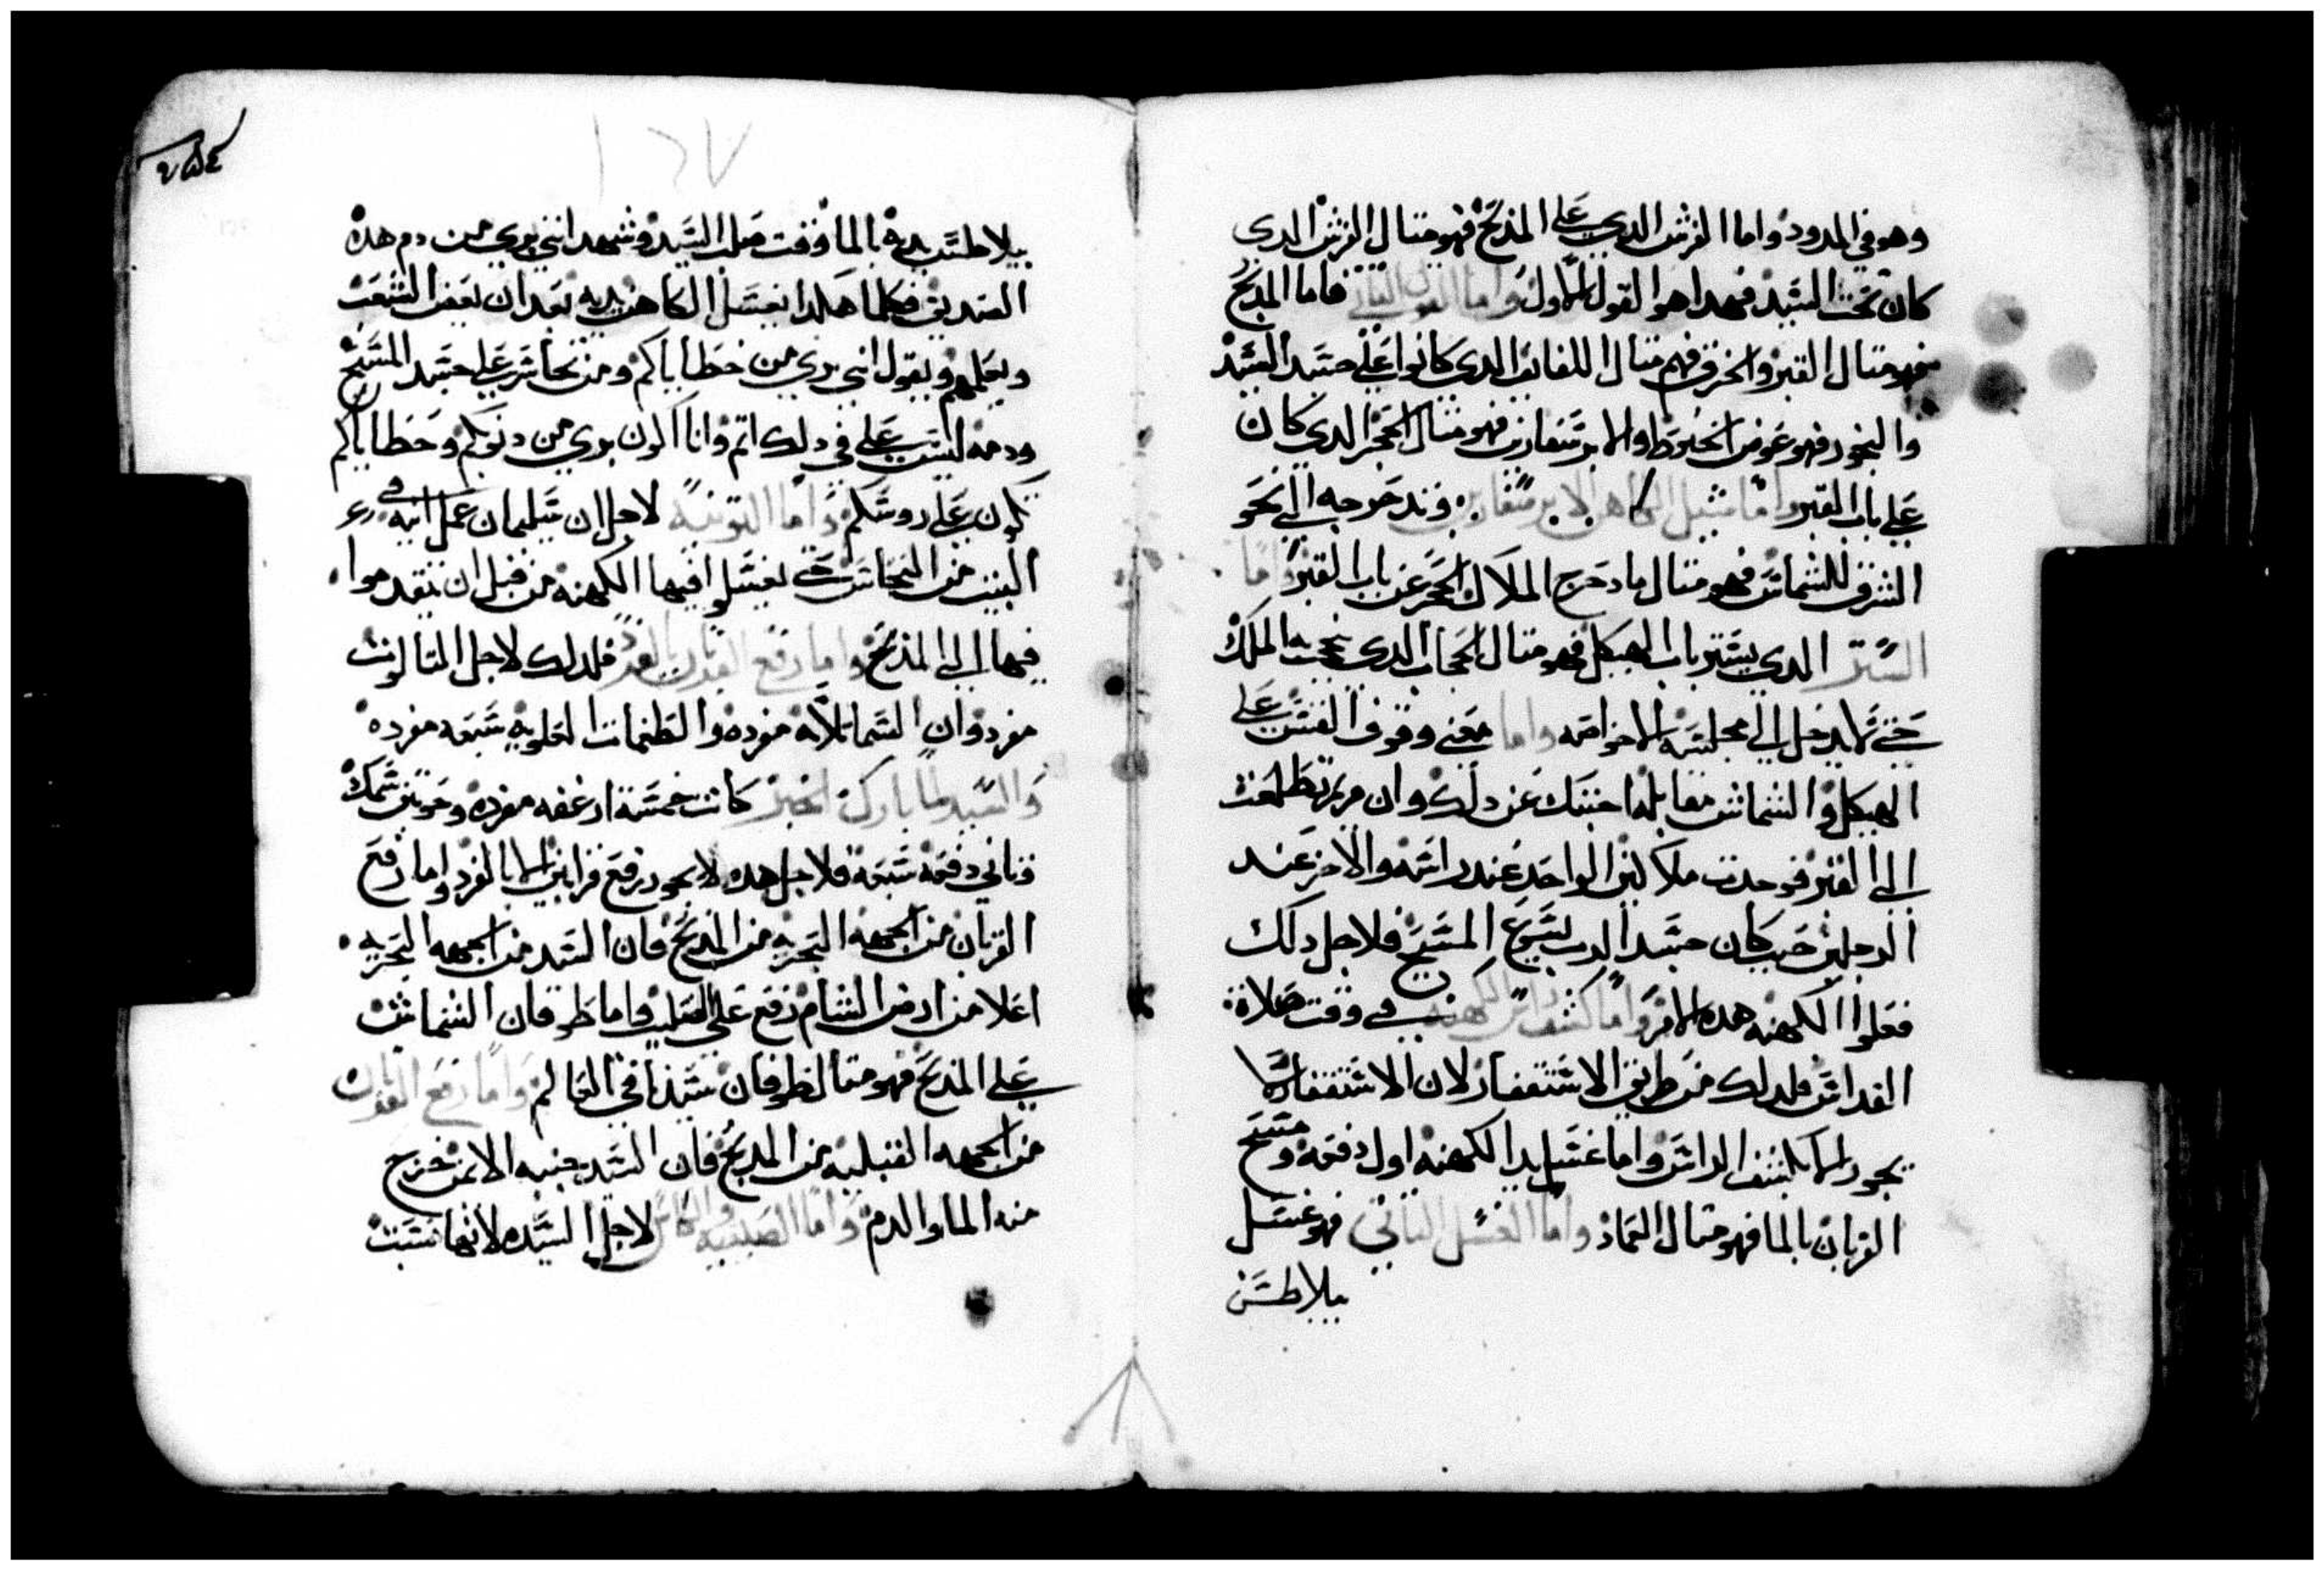 وهو في المدود واما الفرش الدي على المدبح فهو متال الفرش الدي
كان تحت السيد فهدا هو القول الاول واما القول التاني فاما المدبح
فهو متال القبر والخرق فهم متال اللفايف الدي كانوا على جسد السيد
والبخور فهو عوض الحنوط والابرسفارين فهو متال الحجر الدي كان
على باب القبر واما شيل الكاهن الابرسفارين وند حرجه الى نحو
الشرق للشماس فهو متال ما دحرج الملاك الحجر عن باب القبر واما
الستر الدي يستر باب الهيكل فهو متال الحجاب الدي يحجب الملك
حتى لا يدخل الى مجلسه الا خواصه واما معنى وقوف القسس على
الهيكل والشماس مقابله اجبتك عن دلك وان مريم تطلعت
الى القبر فوجدت ملاكين الواحد عند راسه والاخر عند
الرجلين حيت كان جسد الرب يسوع المسيح فلاجل دلك
فعلوا الكهنه هده الامر واما كشف راس الكهنه في وقت صلاة
القداس فلدلك من طريق الاستغفار لان الاستغفار لا
يجوز الا بكشف الراس واما غسل يد الكهنه اول دفعه ومسح
القربان بالما فهو متال العماد واما الغسل التاني فهو غسل
بيلاطس
١٦٧
٢٥٤
بيلاطس يده بالما وقت صلب السيد وشهد انني بري من دم هده
الصديق فكلما هكدا يغسل الكاهن يديه بعد ان يعض الشعب
ويعلمهم ويقول اني بري من خطاياكم ومن تجاسر على جسد المسيح
ودمه ليس علي في دلك اتم وانا اكون بري من دنوبكم وخطاياكم
تكون على روسكم واما التوتيه لاجل ان سليمان عمل انيه في
البيت من النحاس حتى يغسلوا فيها الكهنه من قبل ان يتقدموا
فيها الى المدبح واما رفع القربان بالفرد فلدلك لاجل التالوت
مفرد وان السما تلاته مفرده والطغمات العلويه سبعه مفرده
والسيد لما بارك الخبز كانت خمسة ارغفه مفرده وحوتين سمك
وتاني دفعه سبعه فلاجل هده لا يجوز رفع قرابين الا بالفرد واما رفع
القربان من الجهه البحريه من المدبح فان السيد من الجهه البحريه
اعلا من ارض الشام رفع على الصليب واما طوفان الشماس
على المدبح فهو متال طوفان سيدنا في العالم واما رفع القربان
من الجهه القبليه من المدبح فان السيد جنبه الايمن خرج
منه الما والدم واما الصينيه والكاس لاجل السيده لانها نسبت